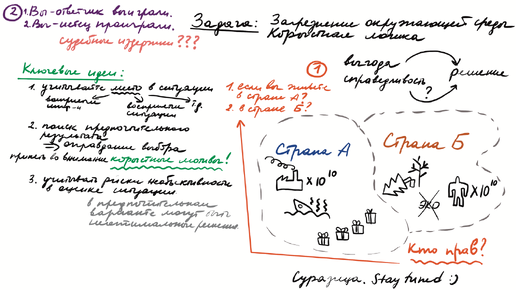 ② 1. Вы-ответчик выиграли.
2. Вы-истец проиграли.
судебные издержки???
Задача: Загрязнение окружающей среды
Корыстная логика
Ключевые идеи:
1. учитывайте место в ситуации
восприятие
ситуации
2. поиск предпочтительного
результата
оправдание выбора
принять во внимание корыстные мотивы!
3. учитывать риски необъективности
в оценке ситуации
в предпочтительном
варианте могут быть
неоптимальной решения
①
1. если вы живёте
в стране А?
2. в стране Б?
выгода
справедливость
?
решение
Страна А
x 10¹⁰
Страна Б
эко
x 10¹⁰
Кто прав?
Stay tuned :)